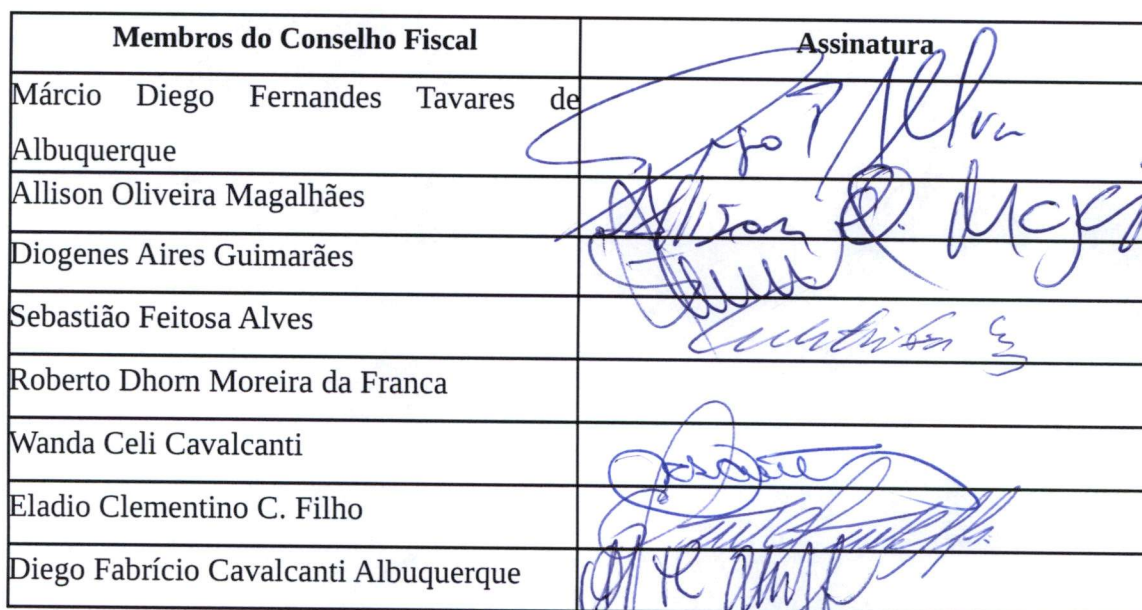 Membros do Conselho Fiscal Assinatura
Márcio Diego Fernandes Tavares de
Albuquerque
Allison Oliveira Magalhães
Allison O.
Diogenes Aires Guimarães
Sebastião Feitosa Alves
Roberto Dhorn Moreira da Franca
Wanda Celi Cavalcanti
Eladio Clementino C. Filho
Diego Fabrício Cavalcanti Albuquerque